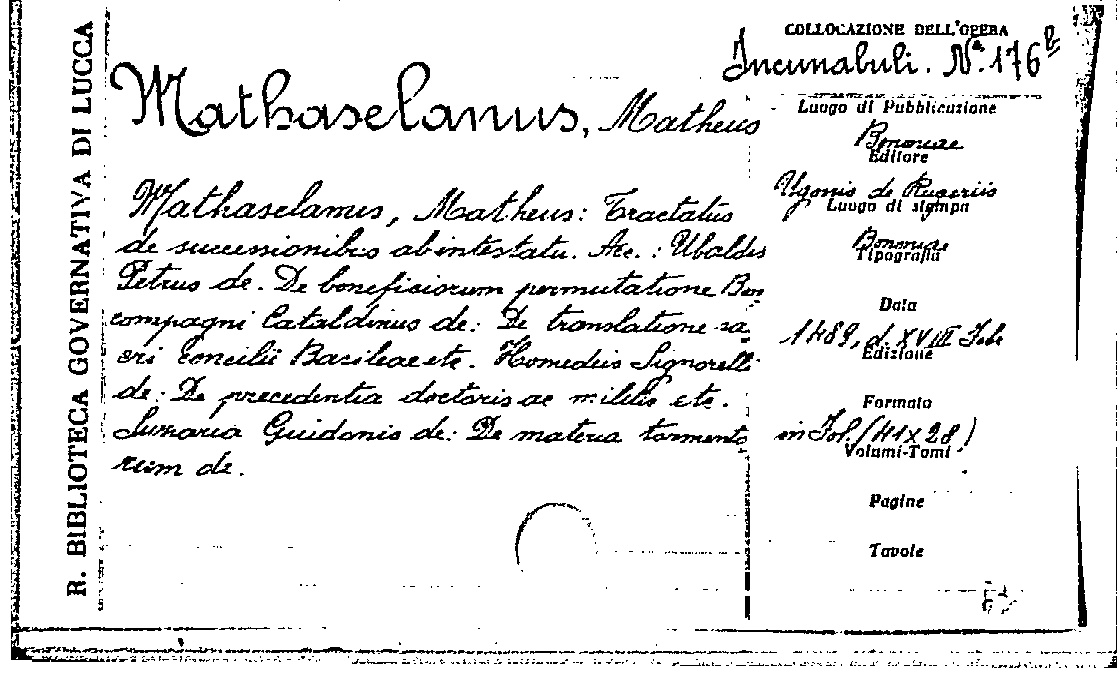 R. BIBLIOTECA GOVERNATIVA DI LUCCA
Mathaselanus, Matheus
Mathaselanus, Matheus: Tractatus
de successionibus ab intestatu. Acc.: Ubaldis
Petrus de. De beneficiorum permutatione Bon
compagni Cataldinus de: De translatione sa
cri concilii Basileae etc. Homedeis Signorelli
de: De precedentia doctoris ac militis etc.
Suzaria Guidonis de: De materia tormento
rum de.
COLLOCAZIONE DELL'OPERA
Incunabuli. Nº. 176 b
Luogo di Pubblicazione
Bononiae
Editore
Ugonis de Rugeriis
Luogo di stampa
Bononiae
Tipografia
Data
1489, d. XVIII Feb
Edizione
Formato
in Fol. (41x28)
Volumi-Tomi
Pagine
Tavole